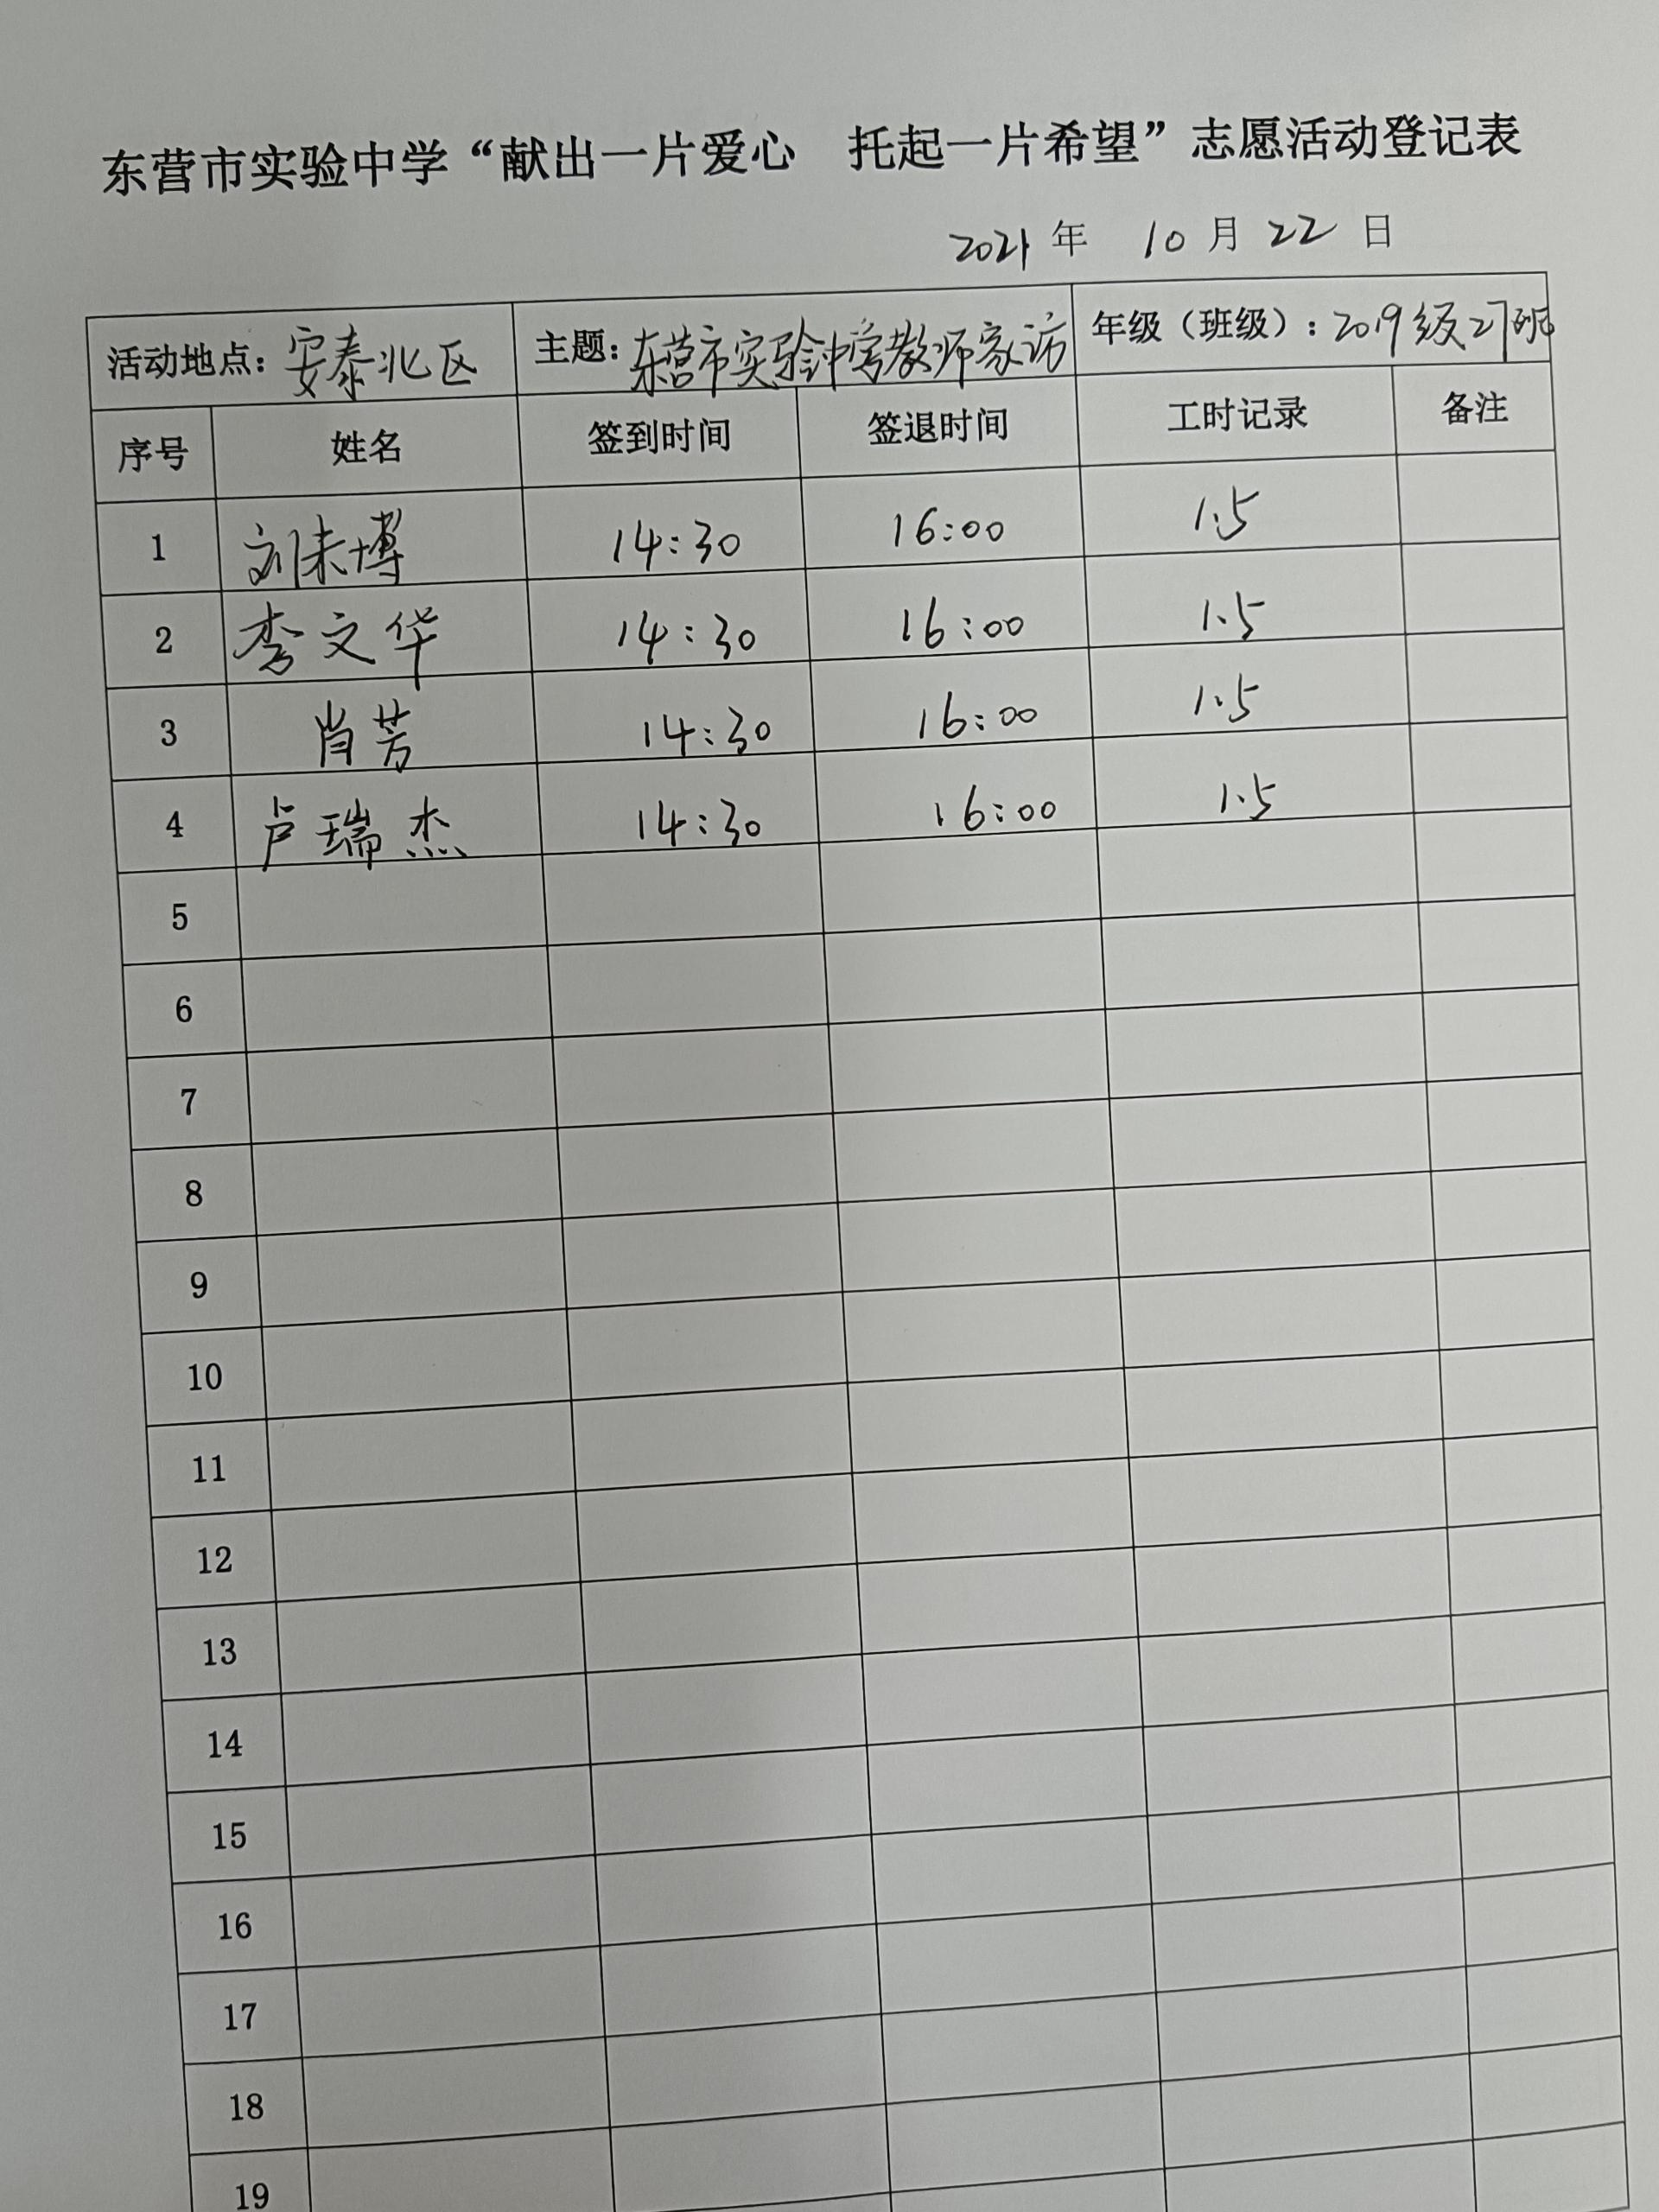 东营市实验中学“献出一片爱心 托起一片希望”志愿活动登记表
2021 年 10 月 22 日
活动地点：安泰北区 主题：东营市实验中学教师家访 年级（班级）：2019级27班
序号 姓名 签到时间 签退时间 工时记录 备注
1 刘未博 14:30 16:00 1.5
2 李文华 14:30 16:00 1.5
3 肖芳 14:30 16:00 1.5
4 卢瑞杰 14:30 16:00 1.5
5
6
7
8
9
10
11
12
13
14
15
16
17
18
19